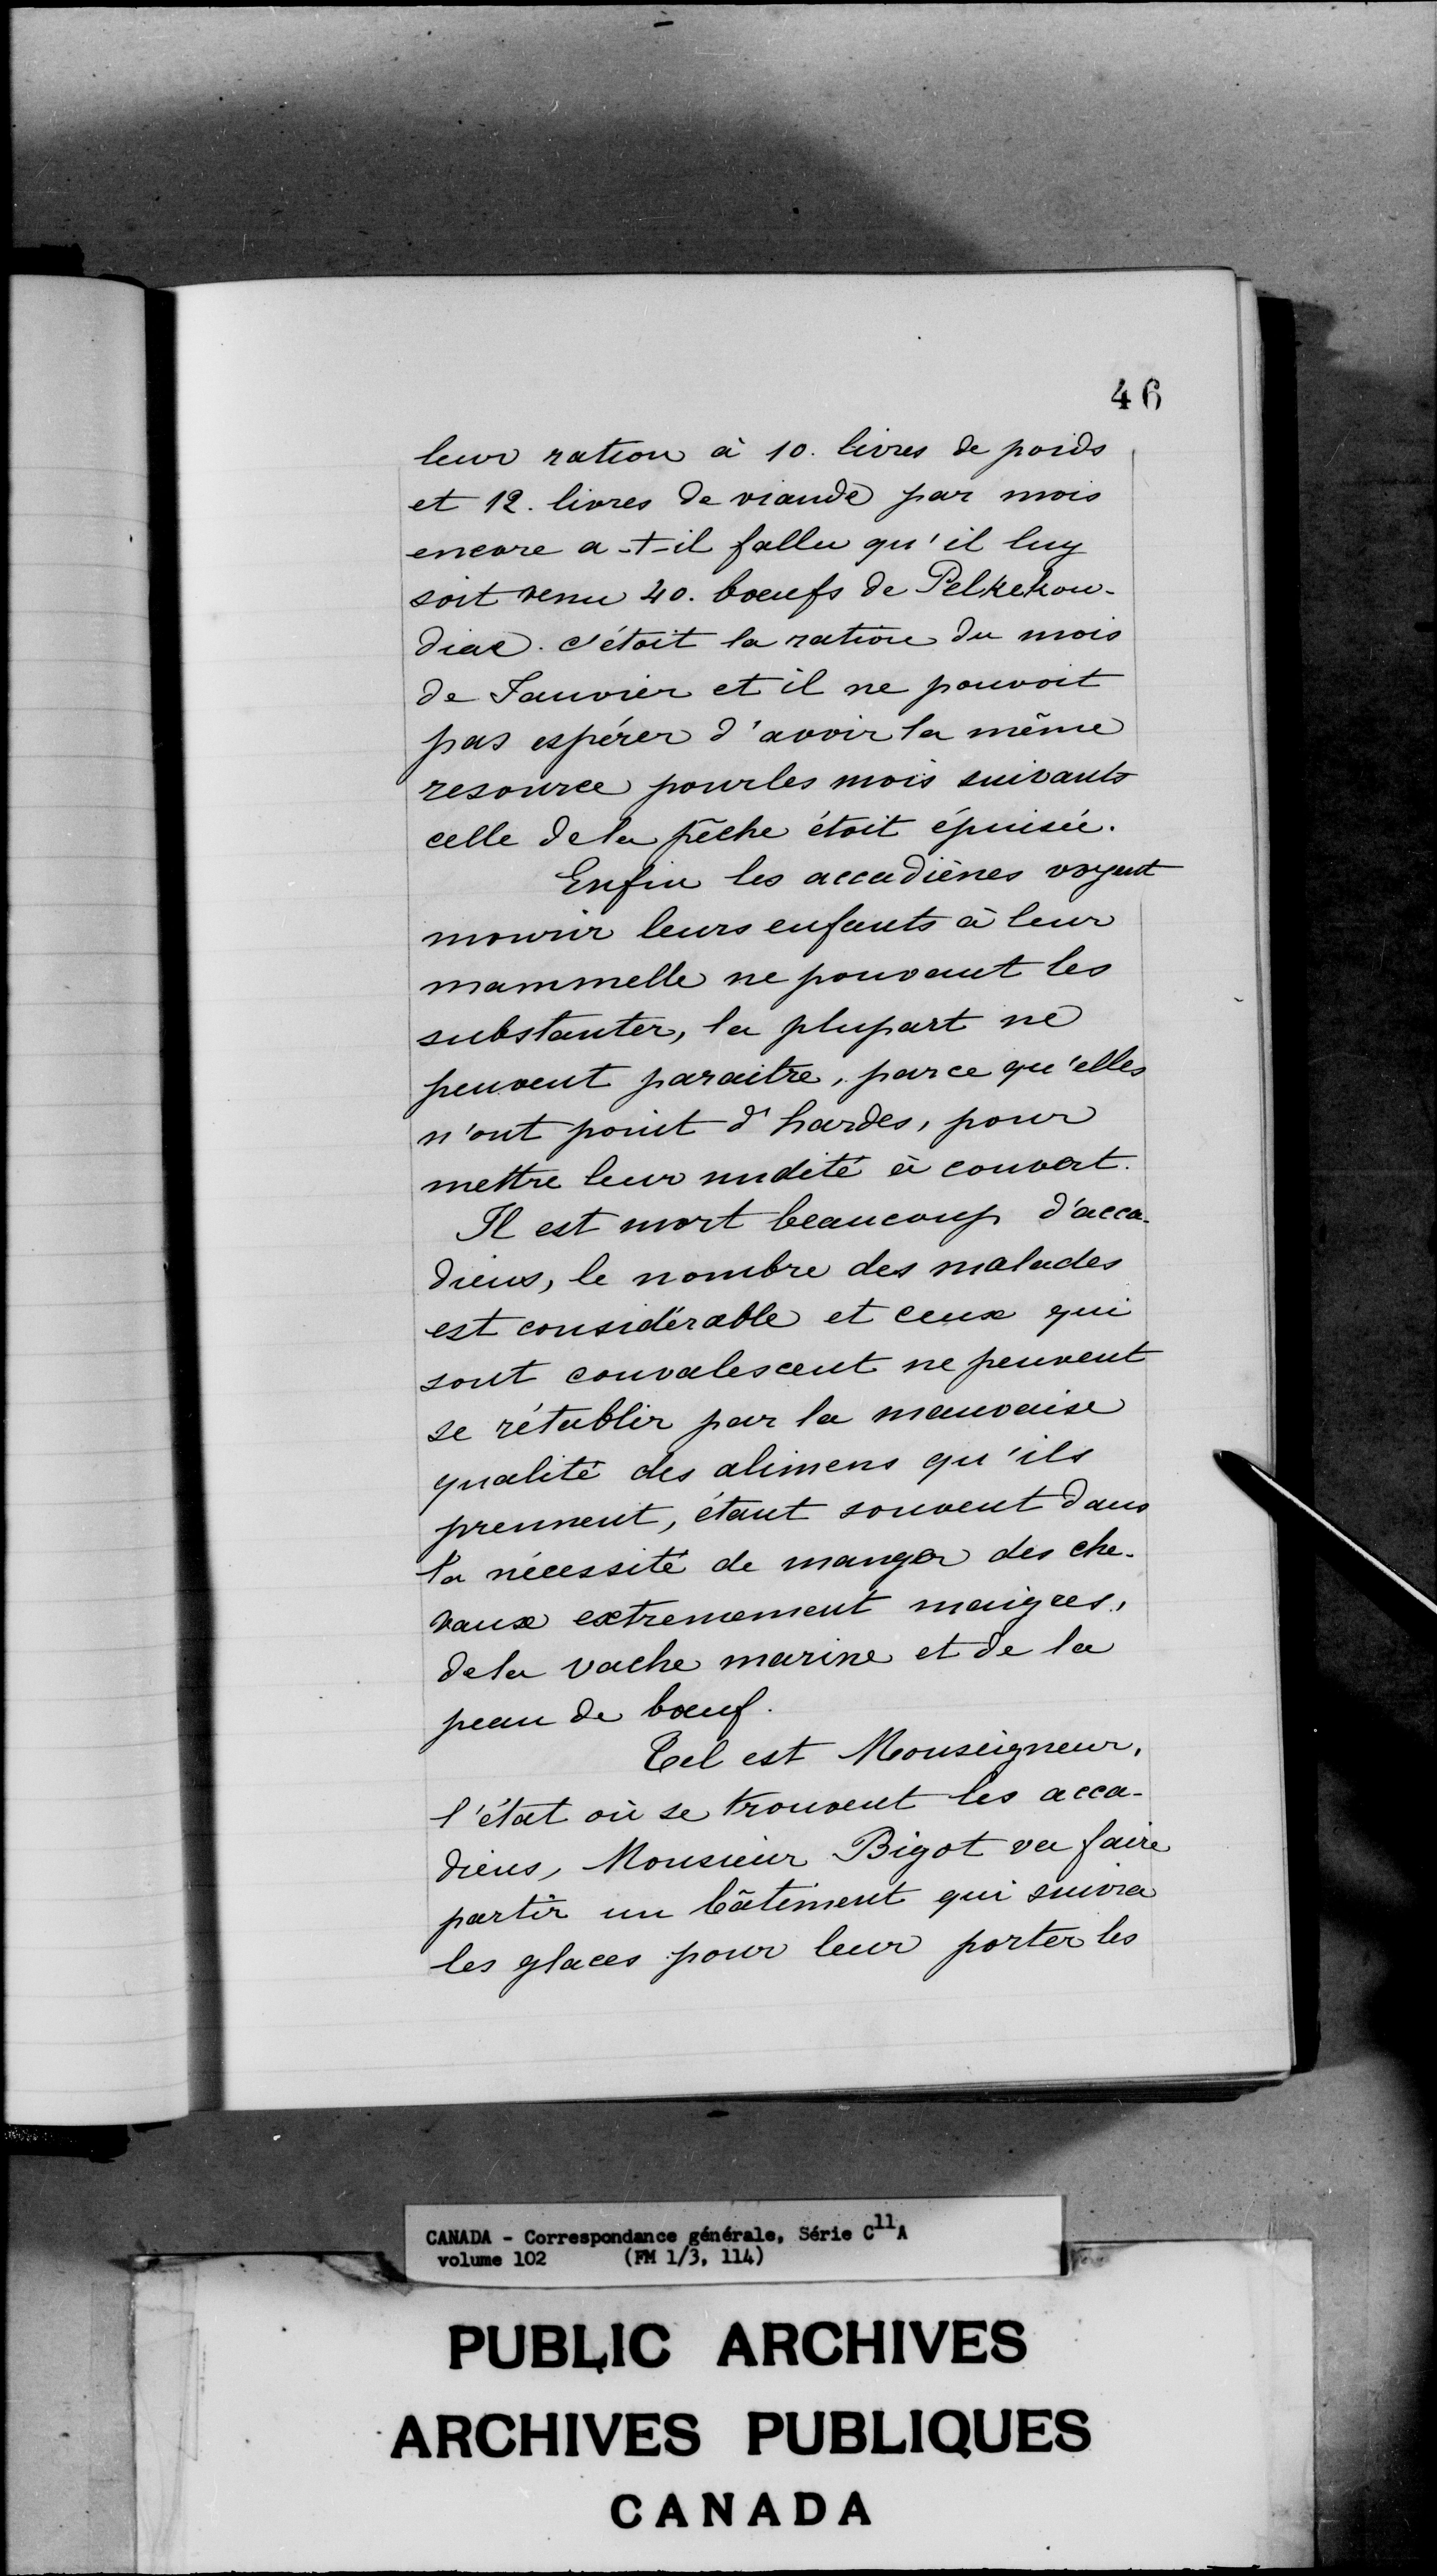 46
leur ration à 10. livres de poids
et 12. livres de viande par mois
encore a-t-il fallu qu'il luy
soit venu 40. boeufs de Pelkekou-
diac. c'étoit la ration du mois
de Janvier et il ne pouvoit
pas espérer d'avoir la même
resource pour les mois suivants
celle de la pêche étoit épuisée.
Enfin les accadiènes voyent
mourir leurs enfants à leur
mammelle ne pouvant les
substanter, la plupart ne
peuvent paraitre, parce qu'elles
n'ont point d'hardes, pour
mettre leur nudité à couvert.
Il est mort beaucoup d'acca-
diens, le nombre des malades
est considérable et ceux qui
sont convalescent ne peuvent
se rétablir par la mauvaise
qualité des alimens qu'ils
prennent, étant souvent dans
la nécessité de manger des che-
vaux extremement maigres,
de la vache marine et de la
peau de boeuf.
Tel est Monseigneur,
l'état où se trouvent les acca-
diens, Monsieur Bigot va faire
partir un bâtiment qui suivra
les glaces pour leur porter les
CANADA - Correspondance générale, Série C11A
volume 102 (FM 1/3, 114)
PUBLIC ARCHIVES
ARCHIVES PUBLIQUES
CANADA